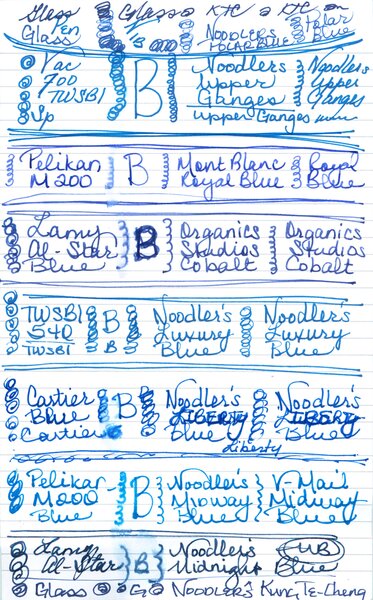 Glass Glass KTC KTC
Pen
Glass B NOODLERS Polar
POLAR BLUE Blue
Vac B Noodlers Noodlers
700 Upper Upper
TWSBI Ganges Ganges
Upper Ganges
Pelikan B MontBlanc Royal
M200 Royal Blue Blue
Lamy B Organics Organics
Al-Star Studios Studios
Blue Cobalt Cobalt
TWSBI B Noodler's Noodler's
540 Luxury Luxury
TWSBI B Blue Blue
Cartier B Noodler's Noodler's
Blue LIBERTY LIBERTY
Cartier Blue Blue
Liberty
Pelikan B Noodler's V-Mail
M200 Midway Midway
Blue Blue Blue
Lamy B Noodler's MB
Al-Star Midnight Blue
Glass G NOODLERS Kung Te-Cheng